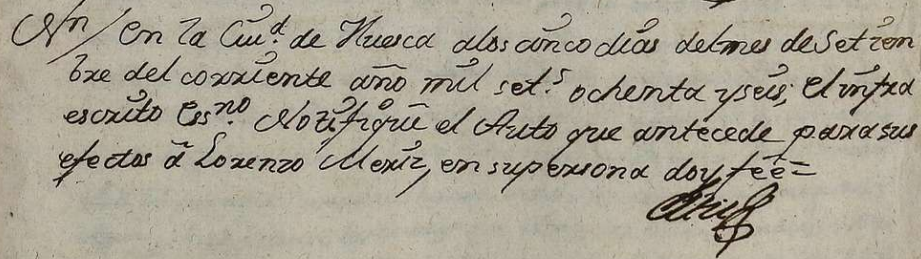 Nn/ En la Ciud. de Huesca alos cinco dias del mes de Setiem
bre del corriente año mil sets. ochenta y seis; El infra
escrito Essno. Notifiqué el Auto que antecede para sus
efectos á Lorenzo Meriz, en su persona doy feé =